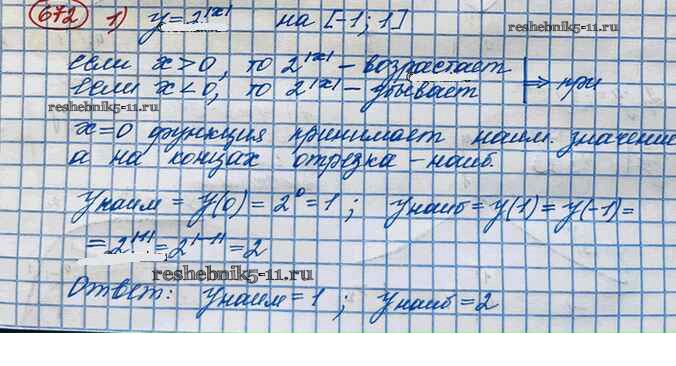 672 1) y = 2^|x| на [-1; 1]
reshebnik5-11.ru
если x > 0, то 2^|x| - возрастает
если x < 0, то 2^|x| - убывает | ⇒ при
reshebnik5-11.ru
x=0 функция принимает наим. значение
а на концах отрезка - наиб.
reshebnik5-11.ru
yнаим = y(0) = 2^0 = 1 ; yнаиб = y(1) = y(-1) =
= 2^|1| = 2^|-1| = 2
reshebnik5-11.ru
Ответ: yнаим = 1 ; yнаиб = 2